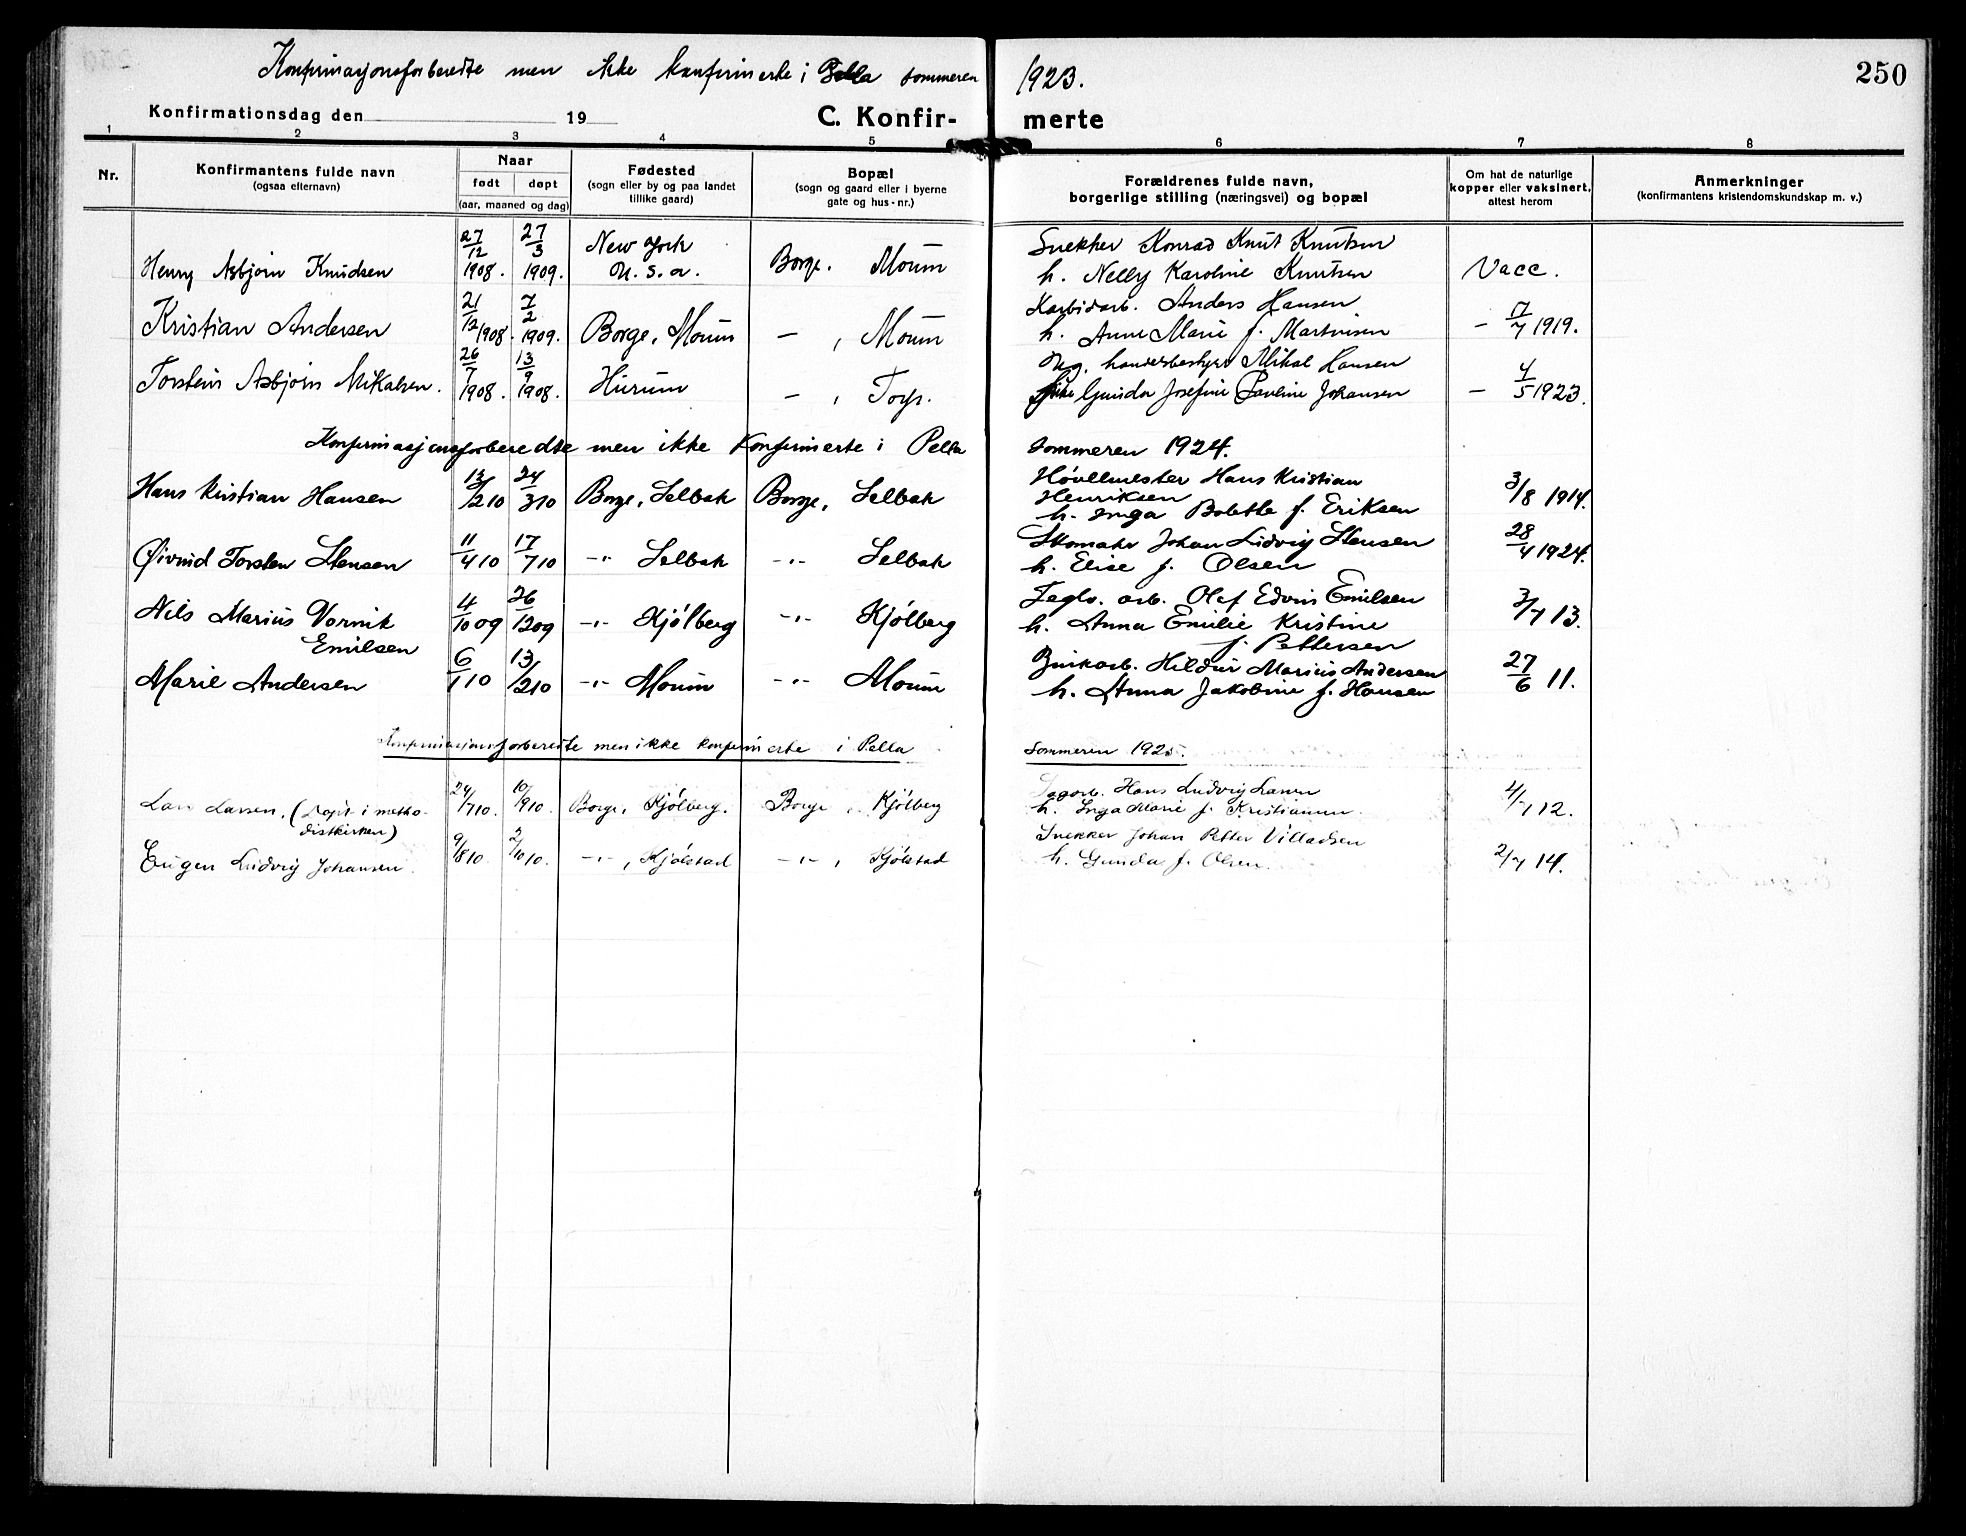 Konfirmasjonsforberedte men ikke konfirmerte i Pella sommeren 1923.
250
Konfirmationsdag den 19
C. Konfir-merte
1 2 3 4 5 6 7 8
Nr.
Konfirmantens fulde navn
(ogsaa efternavn)
Naar
født døpt
(aar, maaned og dag)
Fødested
(sogn eller by og paa landet
tillike gaard)
Bopæl
(sogn og gaard eller i byerne
gate og hus-nr.)
Forældrenes fulde navn,
borgerlige stilling (næringsvei) og bopæl
Om hat de naturlige
kopper eller vaksinert,
attest herom
Anmerkninger
(konfirmantens kristendomskundskap m. v.)
27/12 27/3 New York Snekker Konrad Knut Knutsen
Henry Asbjørn Knudsen 1908. 1909. U. S. a. Borge. Moum h. Nelly Karoline Knutsen Vacc.
21/12 7/2 Karbidarb. Anders Hansen
Kristian Andersen 1908. 1909. Borge, Moum — , Moum h. Anne Marie f. Martinsen — 17/7 1919.
26/7 13/9 Mikal Hansen
Torstein Asbjørn Mikalsen. 1908. 1908. Hurum — , Torp. Gunda Josefine Pauline Johansen — 4/5 1923.
Konfirmasjonsforberedte men ikke konfirmerte i Pella sommeren 1924.
Høvelmester Hans Kristian
Hans Kristian Hansen 13/2 10 24/3 10 Borge, Selbak Borge, Selbak Henriksen 3/8 1914.
h. Inga Bolette f. Eriksen
Øivind Torsten Stensen 11/4 10 17/7 10 -"- Selbak -"- Selbak Skomaker Johan Ludvig Stensen 28/4 1924.
h. Elise f. Olsen
Nils Marius Vornik 4/10 09 26/12 09 -"- Kjølberg -"- Kjølberg Teglv. arb. Olaf Edvin Emilsen 3/7 13.
Emilsen h. Anna Emilie Kristine
f. Pettersen
Marie Andersen 6/1 10 13/2 10 -"- Moum -"- Moum Brukarb. Hildur Marius Andersen 27/6 11.
h. Anna Jakobine f. Hansen
Konfirmasjonsforberedte men ikke konfirmerte i Pella Sommeren 1925.
Lars Larsen, (Døpt i metho- 24/7 10. 10/9 10. Borge, Kjølberg. Borge, Kjølberg Hans Ludvig Larsen 4/7 12.
distkirken) h. Inga Marie f. Kristiansen.
Snekker Johan Petter Villadsen
Eugen Ludvig Johansen. 9/8 10. 2/10 10. -"-, Kjølstad -"-, Kjølstad h. Gunda f. Olsen. 2/7 14.